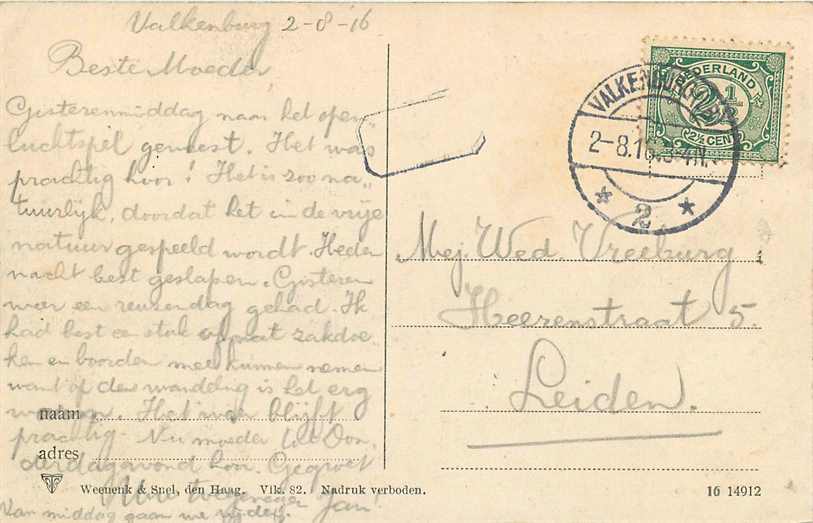 Valkenburg 2-8-16
Beste Moeder
Gisterenmiddag naar het open„
luchtspel geweest. Het was
prachtig hoor! Het is zoo na„
tuurlijk, doordat het in de vrije
natuur gespeeld wordt. Heden
nacht best geslapen. Gisteren
weer een reuzendag gehad. Ik
had best een stuk of wat zakdoe„
ken en boorden mee kunnen nemen
want op den wandeling is het erg
warm. Het weer blijft
prachtig. Nu moeder tot Don„
derdagavond hoor. Gegroet
Uwe Jan
Van middag gaan we
naam
adres
Weenenk & Snel, den Haag. Vlk. 82. Nadruk verboden.
VALKENBURG
2-8.16
2
NEDERLAND
2½
2½ CENT
Mej. Wed. Vreeburg
Heerenstraat 5.
Leiden.
16 14912